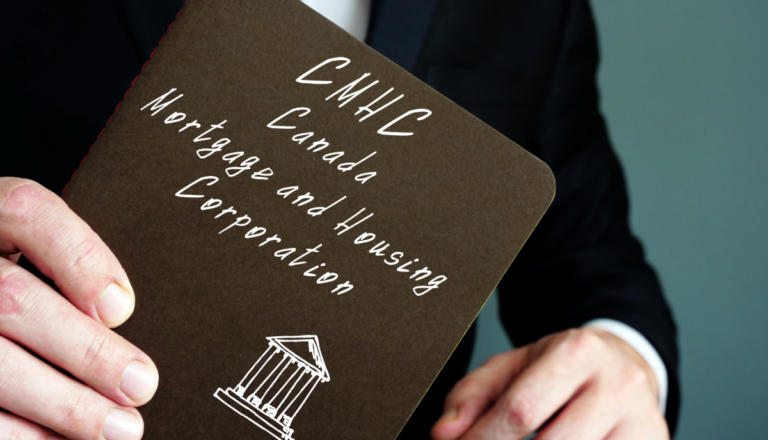 CMHC
Canada
Mortgage and Housing
Corporation